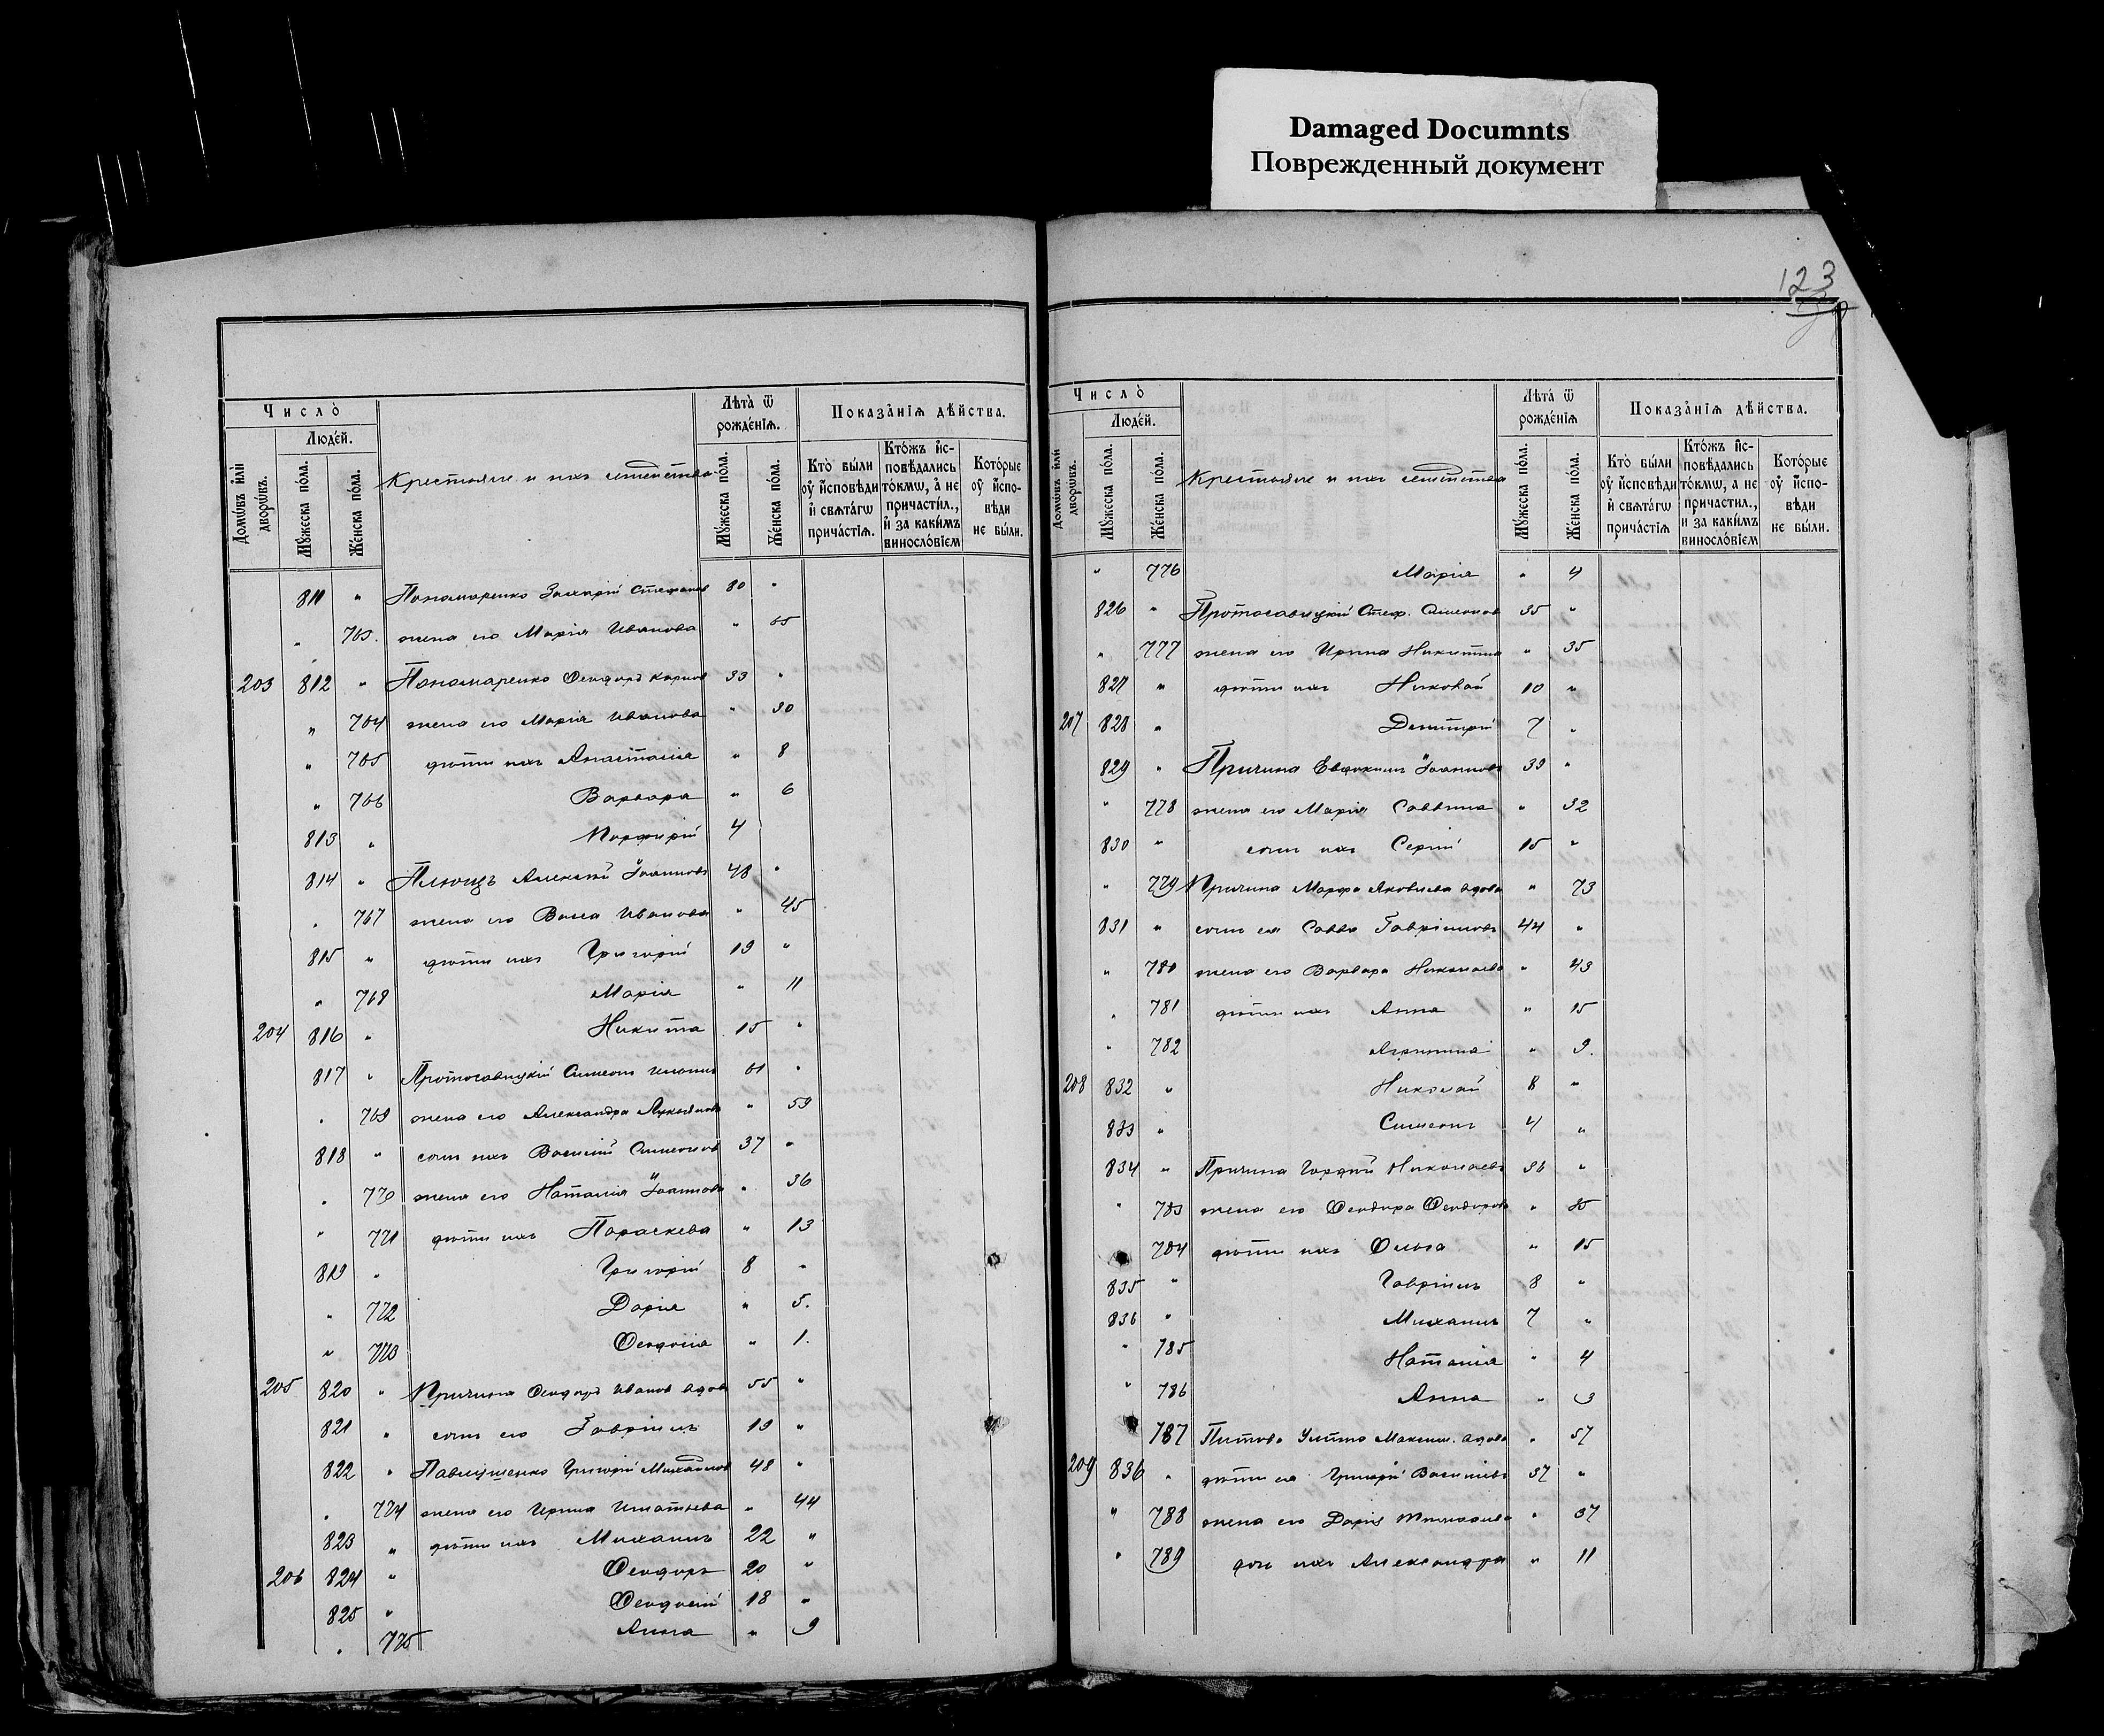 Damaged Documnts
Поврежденный документ
123
Число̀
Люде́й.
Домѡ́въ и҆лѝ дворѡ́въ.
Мꙋ́жеска по́ла.
Же́нска по́ла.
Крестьяне и ихъ семейства
Лѣ́та ѿ рожде́нїѧ.
Мꙋ́жеска по́ла.
Же́нска по́ла.
Показа́нїѧ дѣ́йства.
Кто̀ бы́ли оу҆ и҆сповѣди и҆ свѧта́гѡ прича́стїѧ.
Кто́жъ и҆сповѣ́дались то́кмѡ, а҆ не причасти́л., и҆ за каки́мъ винословїемъ
Кото́рые оу҆ и҆сповѣди не бы́ли.
811 " Пономаренко Захарій Стефановъ 80 "
" 763. жена его Марія Иванова " 65
203 812 " Пономаренко Ѳеодоръ Карповъ 33 "
" 764 жена его Марія Иванова " 30
" 765 дѣти ихъ Анастасія " 8
" 766 Варвара " 6
813 " Порфирій 4
814 " Плющъ Алексѣй Іоанновъ 48 "
" 767 жена его Васса Иванова " 45
815 " дѣти ихъ Григорій 19 "
" 768 Марія " 11
204 816 " Никита 15 "
817 " Протосавицкій Симеонъ 61 "
" 769 жена его Александра Лукьянова " 59
818 " сынъ ихъ Василій Симеоновъ 37 "
" 770 жена его Наталія Іоаннова " 36
" 771 дѣти ихъ Параскева " 13
819 " Григорій 8 "
" 772 Дарія " 5.
" 773 Ѳеодосія " 1.
205 820 " Причина Ѳеодоръ Ивановъ вдов 55 "
821 " сынъ его Гавріилъ 19 "
822 " Павлущенко Григорій Михайловъ 48 "
" 774 жена его Ирина Игнатьева " 44
823 " дѣти ихъ Михаилъ 22 "
206 824 " Ѳеодоръ 20 "
825 " Ѳеодосій 18 "
" 775 Анна " 9
Число̀
Люде́й.
Домѡ́въ и҆лѝ дворѡ́въ.
Мꙋ́жеска по́ла.
Же́нска по́ла.
Крестьяне и ихъ семейства
Лѣ́та ѿ рожде́нїѧ
Мꙋ́жеска по́ла.
Же́нска по́ла.
Показа́нїѧ дѣ́йства.
Кто̀ бы́ли оу҆ и҆сповѣди и҆ свѧта́гѡ прича́стїѧ
Кто́жъ и҆сповѣ́дались то́кмѡ, а не причасти́л., и за каки́мъ винословїемъ
Кото́рые оу҆ и҆сповѣди не бы́ли.
" 776 Марія " 4
826 " Протосавицкій Стеф. Симеонов 35 "
" 777 жена его Ирина Никитина " 35
827 " дѣти ихъ Николай 10 "
207 828 " Димитрій 7 "
829 " Причина Евдокимъ Іоанновъ 39 "
" 778 жена его Марія Саввина " 32
830 " сынъ ихъ Сергій 15 "
" 779 Причина Марфа Яковлева вдова " 73
831 " сынъ ея Савва Гавріиловъ 44 "
" 780 жена его Варвара Николаева " 43
" 781 дѣти ихъ Анна " 15
" 782 Агриппина " 9.
208 832 " Николай 8 "
833 " Симеонъ 4 "
834 " Причина Гордій Николаевъ 36 "
" 783 жена его Ѳеодора Ѳеодорова " 35
784 дѣти ихъ Ольга " 15
835 " Гавріилъ 8 "
836 " Михаилъ 7 "
" 785 Наталія " 4
" 786 Анна " 3
787 Максим. вдова " 57
209 836 " дѣти ея Григорій Васильевъ 37 "
" 788 жена его Дарія " 37
" 789 дочь ихъ Александра " 11